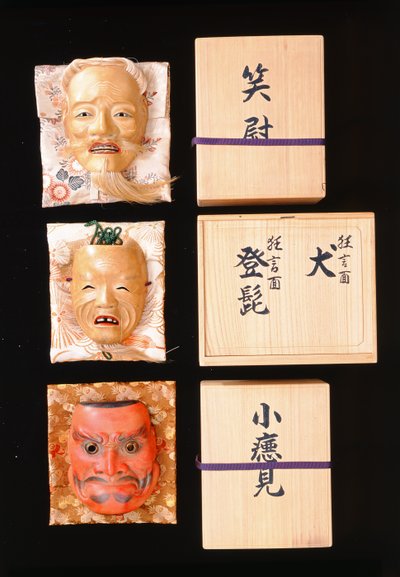 笑尉
狂言面
犬
狂言面
登髭
小癋見